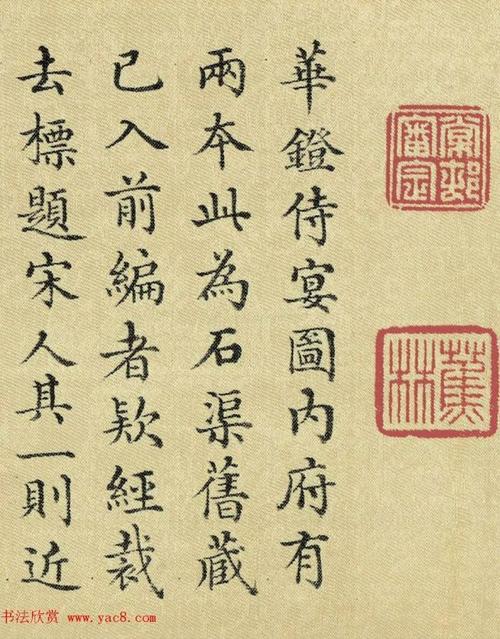 華鐙侍宴圖內府有
兩本此為石渠舊藏
已入前編者欵經裁
去標題宋人其一則近
棠邨審定
蕉林
书法欣赏 www.yac8.com